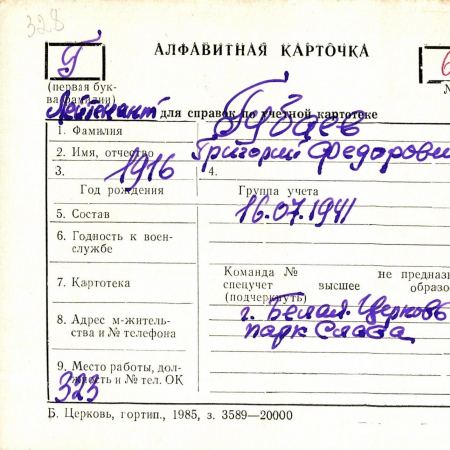 328
АЛФАВИТНАЯ КАРТОЧКА
Г
(первая бук-
ва фамилии)
Лейтенант для справок по учетной картотеке
1. Фамилия Губаев
2. Имя, отчество Григорий Федорови
3. 1916 4.
Год рождения Группа учета
5. Состав 16.07.1941
6. Годность к воен-
службе
Команда № не предназ
7. Картотека спецучет высшее образо
(подчеркнуть)
8. Адрес м-житель-
ства и № телефона
г. Белая-Церковь
парк Слава
9. Место работы, дол-
жность и № тел. ОК
323
Б. Церковь, гортип., 1985, з. 3589—20000